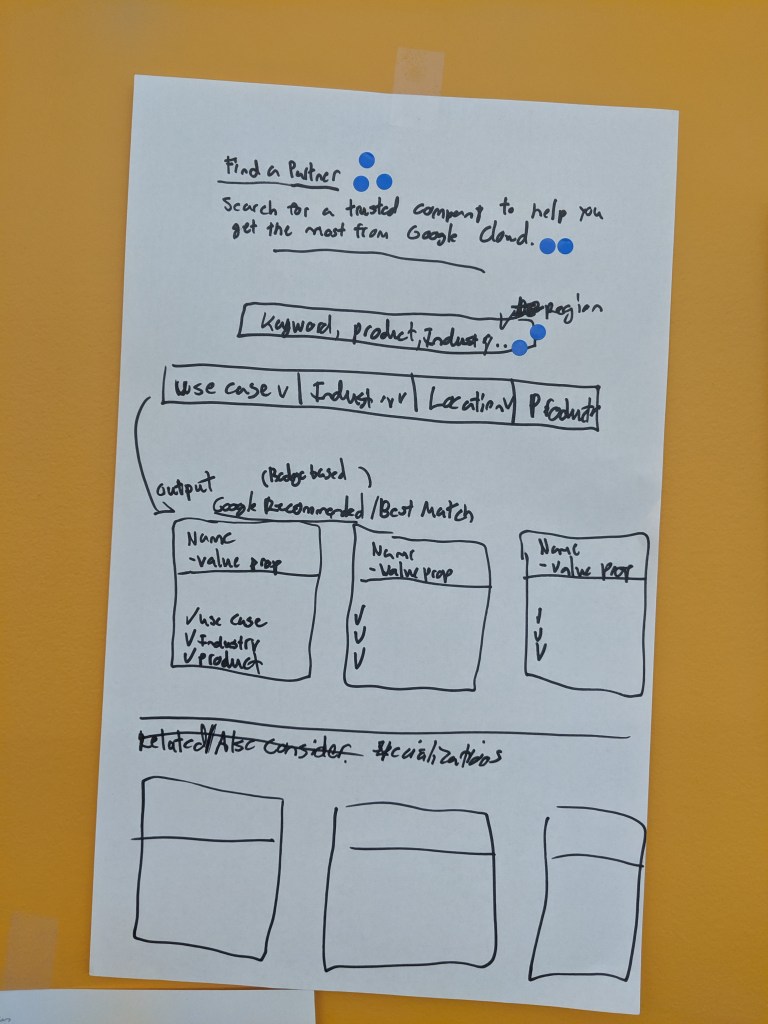 Find a Partner
Search for a trusted company to help you
get the most from Google Cloud.
Region
Keyword, product, Industry..
use case v Industry v Location v Product
output
(Badge based)
Google Recommended / Best Match
Name
-value prop
✓ use case
✓ Industry
✓ product
Name
-value prop
✓
✓
✓
Name
-value prop
✓
✓
Related / Also Consider.